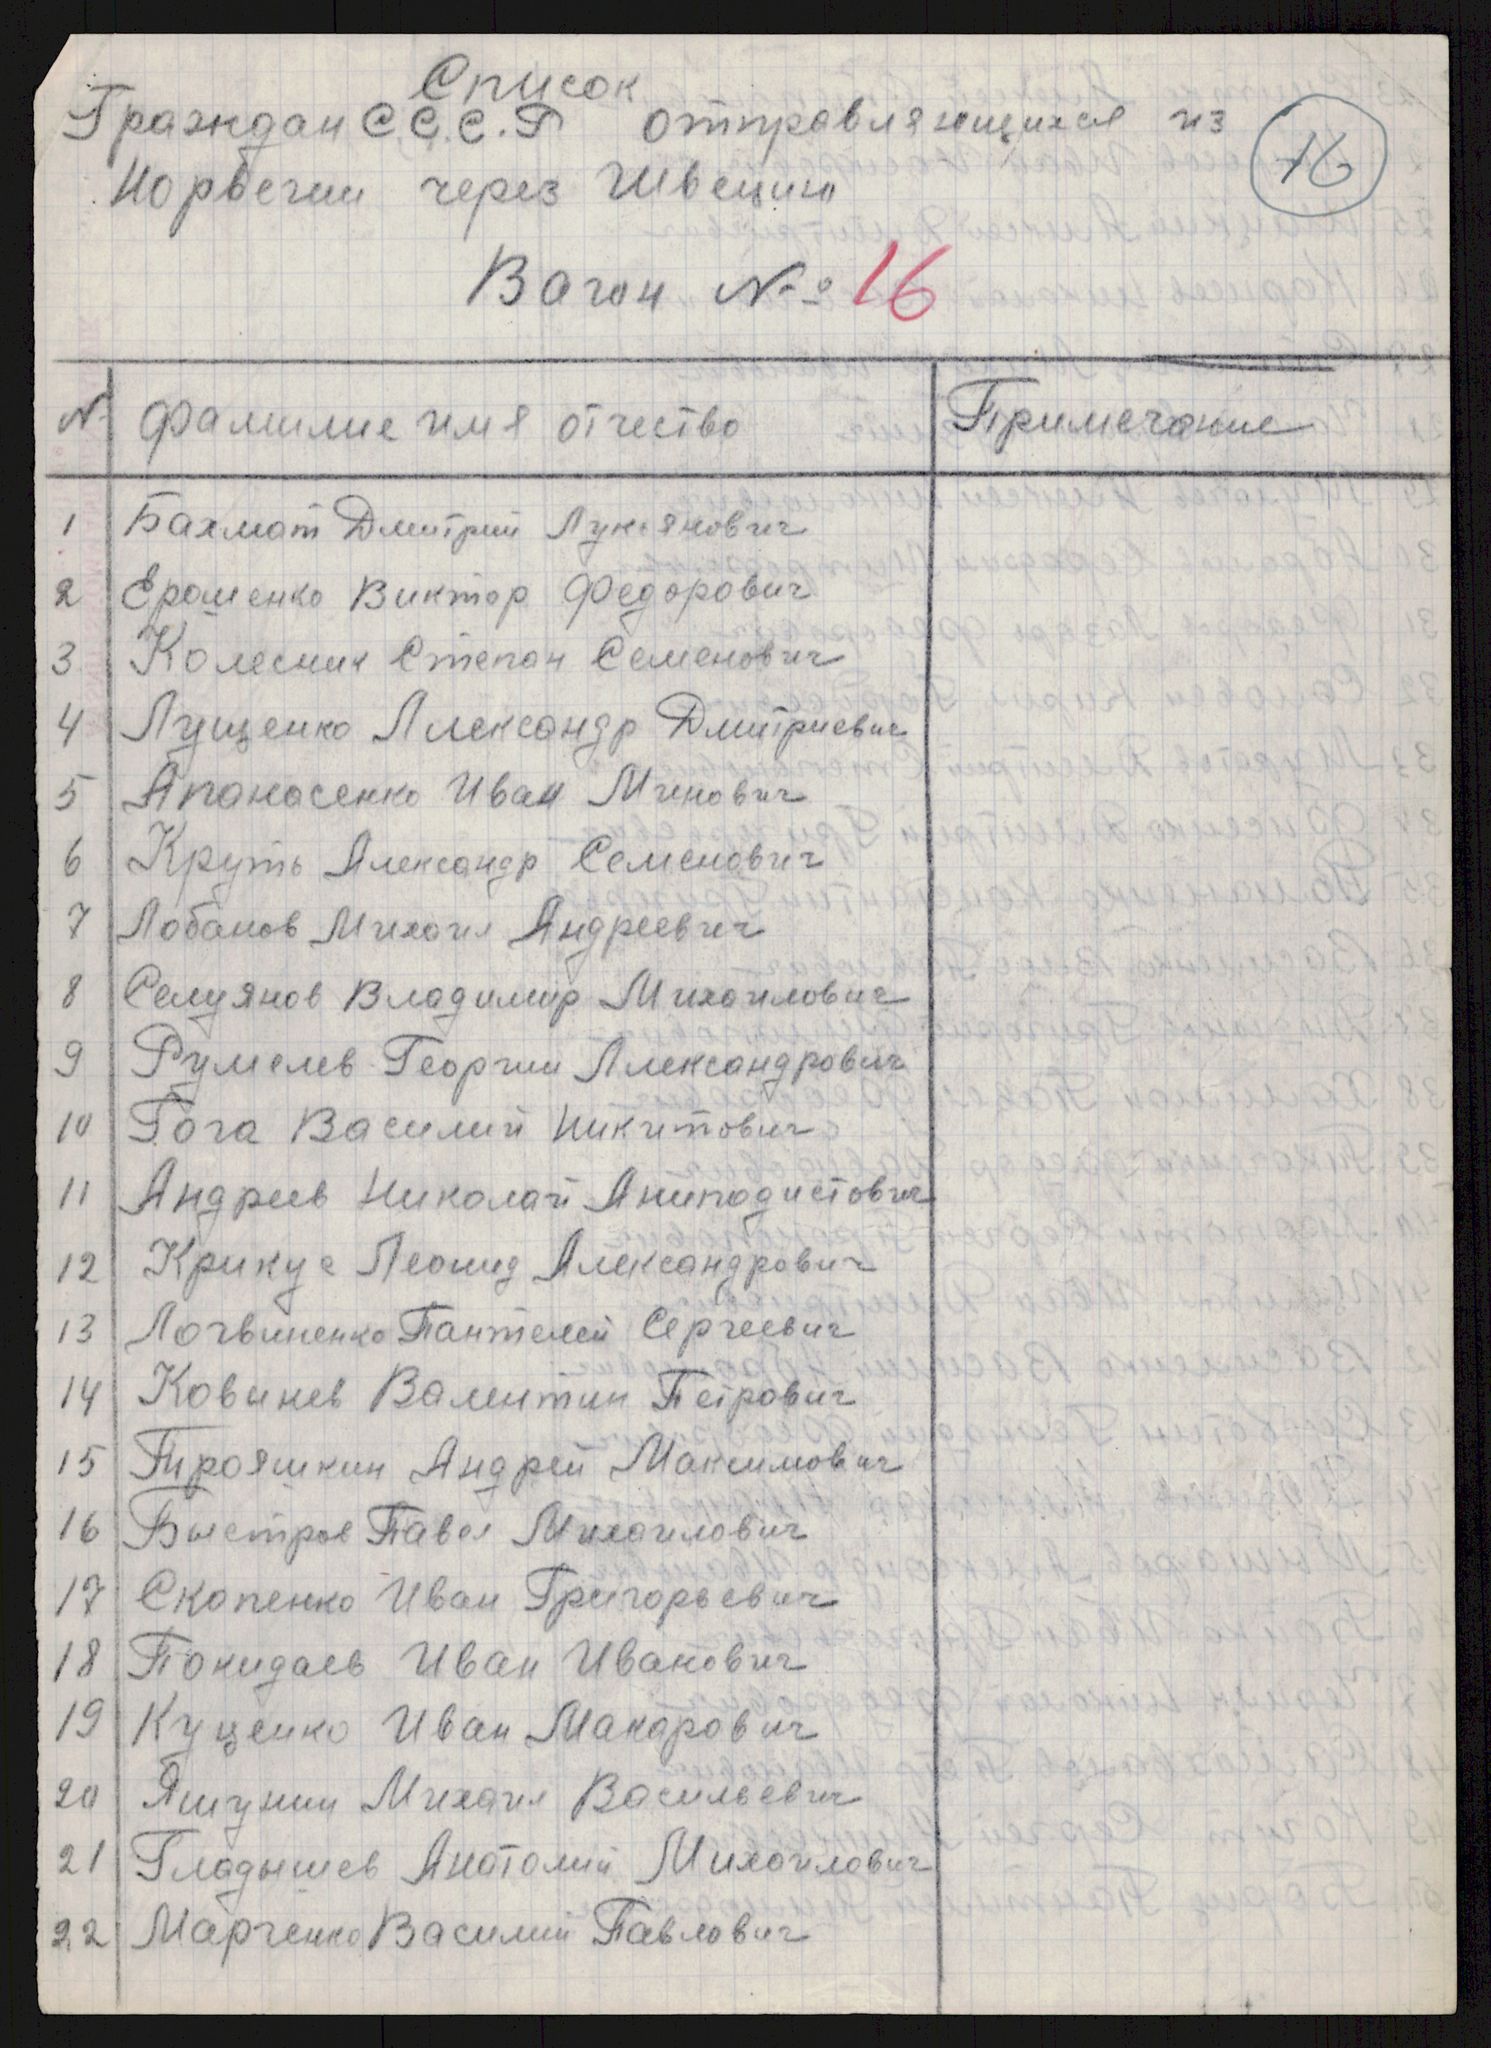 Список
Граждан С.С.С.Р отправляющихся из
Норвегии через Швецию
16
Вагон № 16
№ Фамилие имя отчество Примечание
1 Бахмат Дмитрий Лукьянович
2 Ероменко Виктор Федорович
3 Колесник Степан Семенович
4 Лущенко Александр Дмитриевич
5 Апанасенко Иван Минович
6 Круть Александр Семенович
7 Лобанов Михаил Андреевич
8 Селуянов Владимир Михаилович
9 Румелев Георгии Александрович
10 Гога Василий Никитович
11 Андреев Николай Аниподистович
12 Крикус Леонид Александрович
13 Логвиненко Пантелей Сергеевич
14 Ковынев Валентин Петрович
15 Трояшкин Андрей Максимович
16 Быстров Павел Михаилович
17 Скопенко Иван Григорьевич
18 Покидаев Иван Иванович
19 Куценко Иван Макарович
20 Яшунин Михаил Васильевич
21 Гладышев Анатолий Михаилович
22 Марченко Василий Павлович